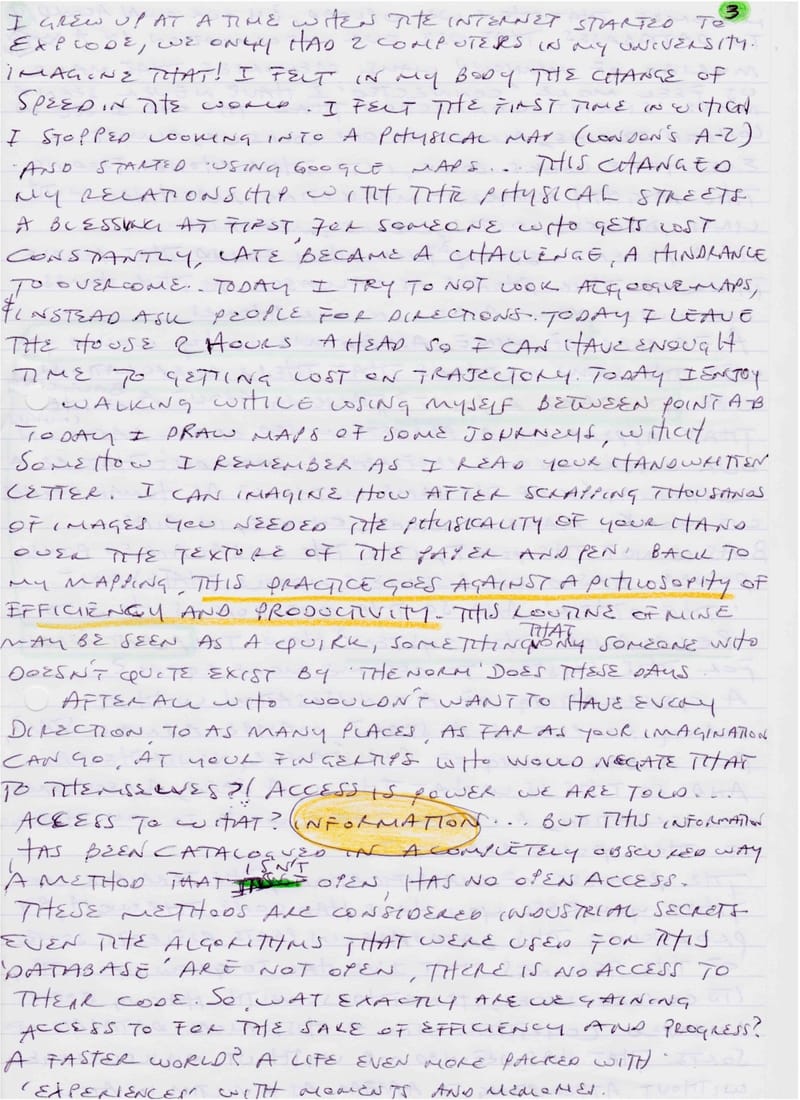 3
I GREW UP AT A TIME WHEN THE INTERNET STARTED TO
EXPLODE, WE ONLY HAD 2 COMPUTERS IN MY UNIVERSITY.
IMAGINE THAT! I FELT IN MY BODY THE CHANGE OF
SPEED IN THE WORLD. I FELT THE FIRST TIME IN WHICH
I STOPPED LOOKING INTO A PHYSICAL MAP (LONDON'S A-Z)
AND STARTED USING GOOGLE MAPS... THIS CHANGED
MY RELATIONSHIP WITH THE PHYSICAL STREETS.
A BLESSING AT FIRST, FOR SOMEONE WHO GETS LOST
CONSTANTLY, LATE BECAME A CHALLENGE, A HINDRANCE
TO OVERCOME. TODAY I TRY TO NOT LOOK AT GOOGLE MAPS,
& INSTEAD ASK PEOPLE FOR DIRECTIONS. TODAY I LEAVE
THE HOUSE 2 HOURS AHEAD SO I CAN HAVE ENOUGH
TIME TO GETTING LOST ON TRAJECTORY. TODAY I ENJOY
WALKING WHILE LOSING MYSELF BETWEEN POINT A B
TODAY I DRAW MAPS OF SOME JOURNEYS, WHICH
SOMEHOW I REMEMBER AS I READ YOUR HANDWRITTEN
LETTER. I CAN IMAGINE HOW AFTER SCRAPPING THOUSANDS
OF IMAGES YOU NEEDED THE PHYSICALITY OF YOUR HAND
OVER THE TEXTURE OF THE PAPER AND PEN. BACK TO
MY MAPPING, THIS PRACTICE GOES AGAINST A PHILOSOPHY OF
EFFICIENCY AND PRODUCTIVITY. THIS ROUTINE OF MINE
MAY BE SEEN AS A QUIRK, SOMETHING THAT ONLY SOMEONE WHO
DOESN'T QUITE EXIST BY 'THE NORM' DOES THESE DAYS.
AFTER ALL WHO WOULDN'T WANT TO HAVE EVERY
DIRECTION, TO AS MANY PLACES, AS FAR AS YOUR IMAGINATION
CAN GO, AT YOUR FINGERTIPS WHO WOULD NEGATE THAT
TO THEMSELVES?! ACCESS IS POWER WE ARE TOLD...
ACCESS TO WHAT? INFORMATION... BUT THIS INFORMATION
HAS BEEN CATALOGUED IN A COMPLETELY OBSCURED WAY
A METHOD THAT ISN'T OPEN, HAS NO OPEN ACCESS.
THESE METHODS ARE CONSIDERED INDUSTRIAL SECRETS
EVEN THE ALGORITHMS THAT WERE USED FOR THIS
'DATABASE' ARE NOT OPEN, THERE IS NO ACCESS TO
THEIR CODE. SO, WAT EXACTLY ARE WE GAINING
ACCESS TO FOR THE SAKE OF EFFICIENCY AND PROGRESS?
A FASTER WORLD? A LIFE EVEN MORE PACKED WITH
'EXPERIENCES' WITH MOMENTS AND MEMORIES.